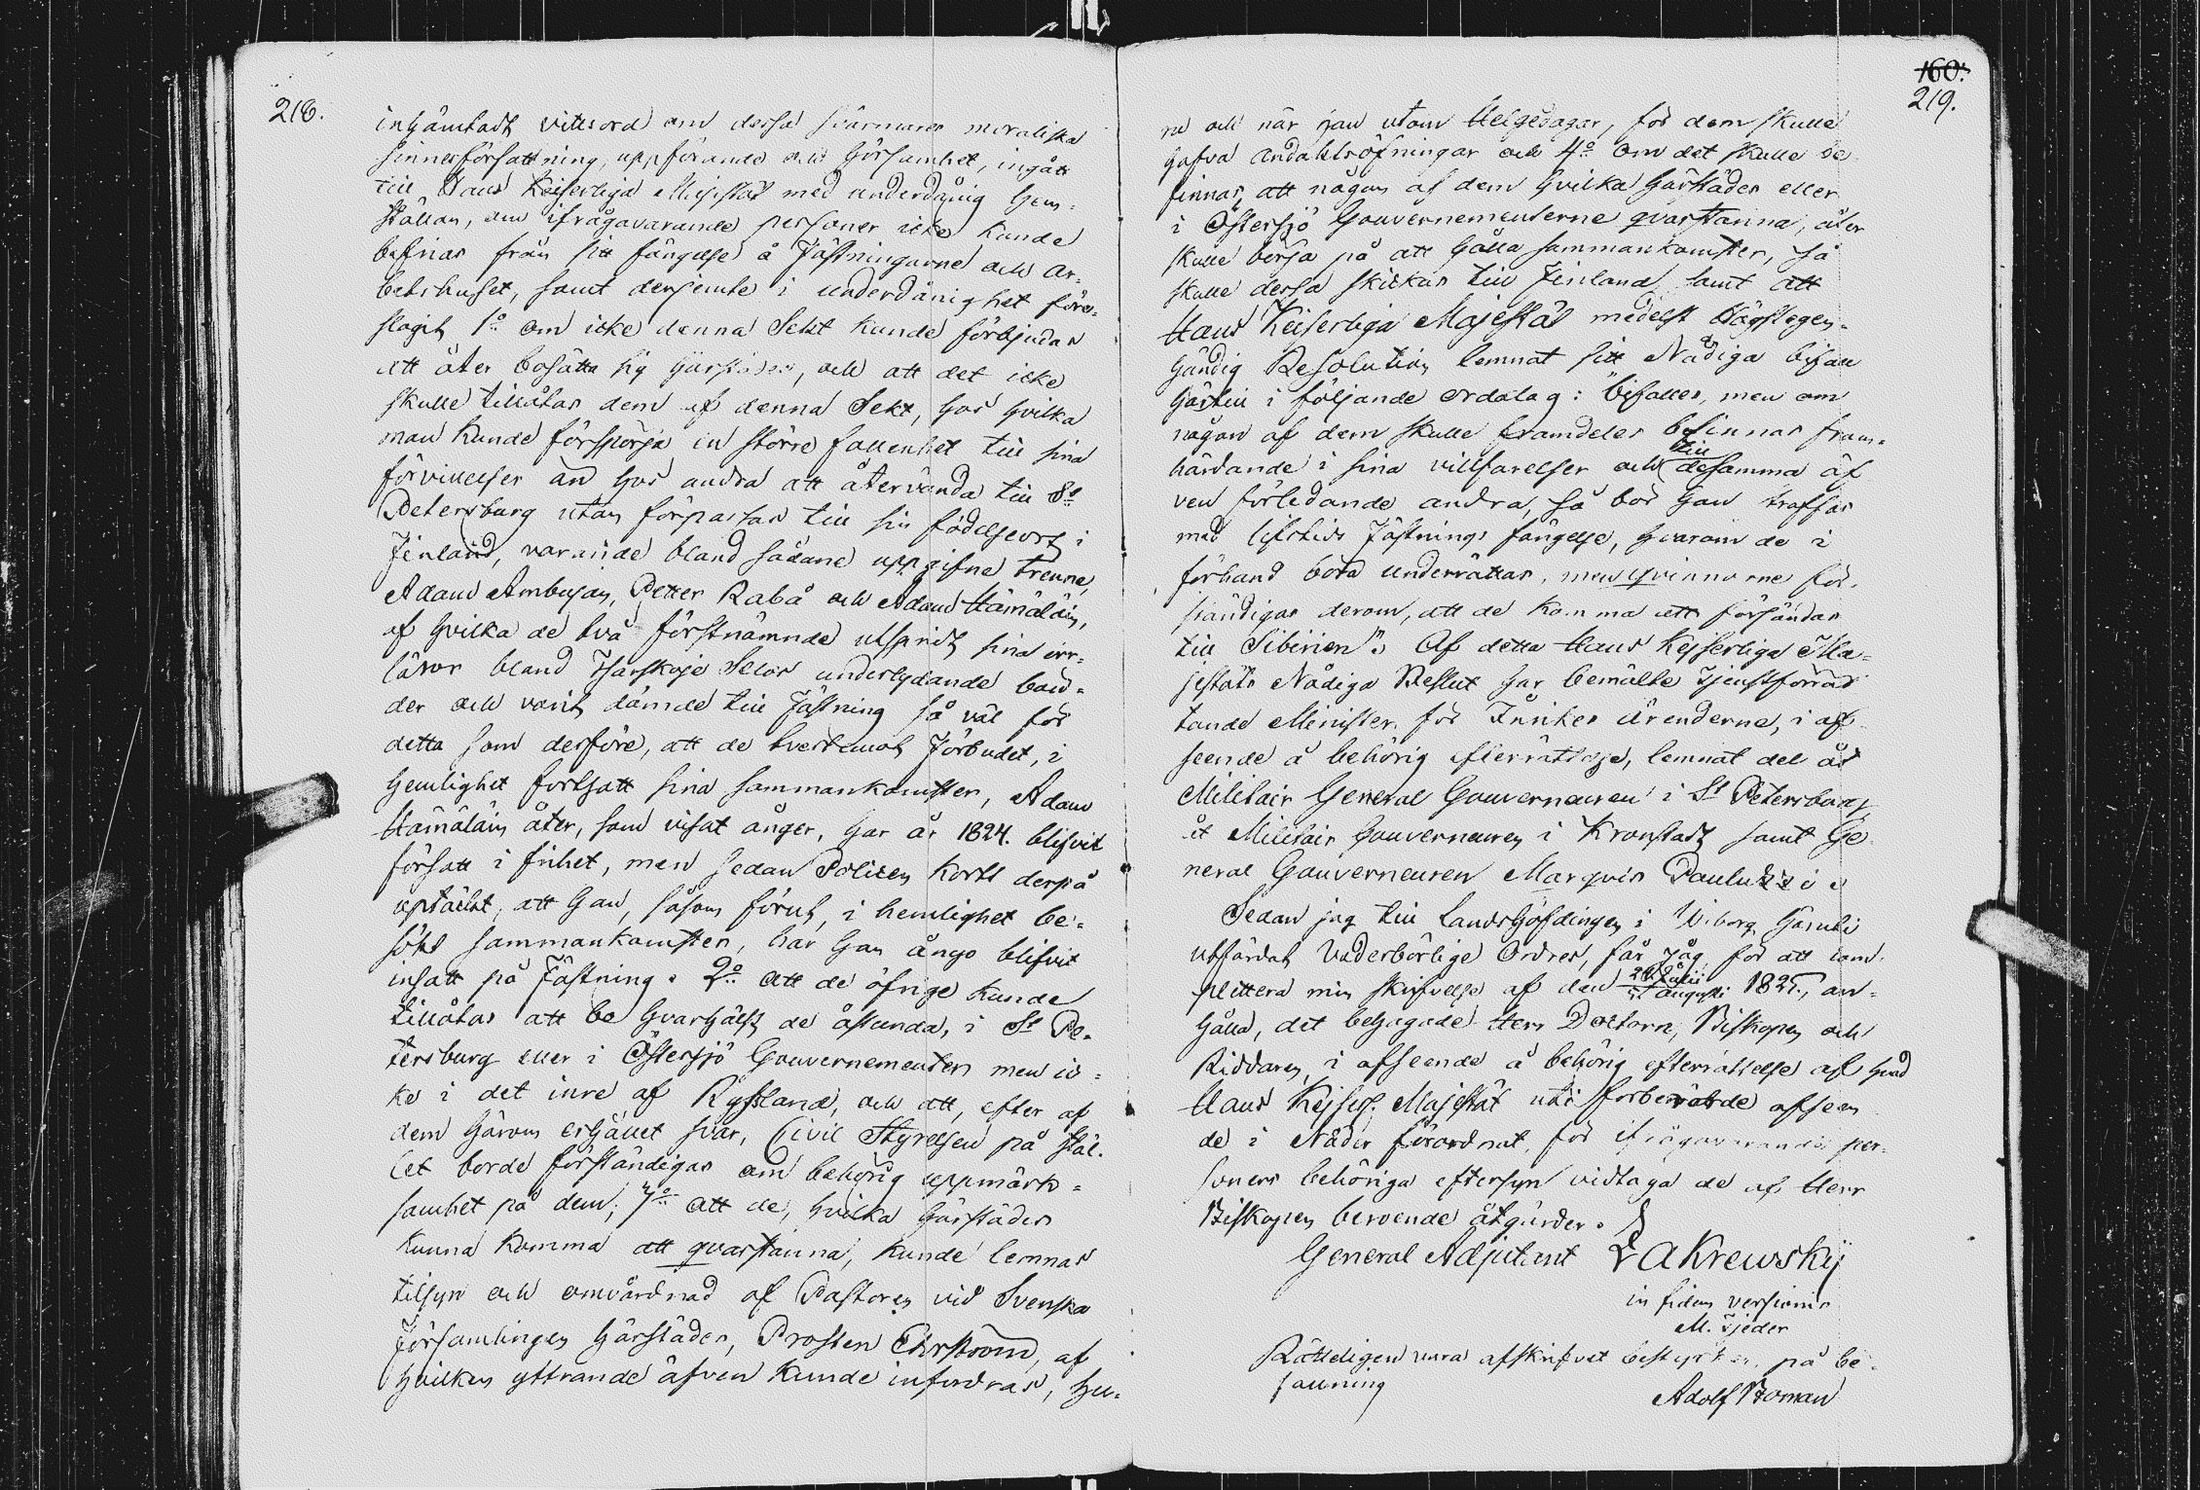 218.
inhämtadt vittesord om dessa svärmares moraliska
sinnesförfattning, uppförande och hörsamhet, ingått
till Hans Keiserliga Majestät med underdånig hem-
ställan, om ifrågavarande personer icke kunde
befrias från sitt fängelse å Fästningarne och ar-
betshuset, samt derjemte i underdånighet före-
slagit 1o om icke denna Sekt kunde förbjudas
att åter bosätta sig härstädes, och att det icke
skulle tillåtas dem af denna Sekt, hos hvilka
man kunde förspörja en större fallenhet till sina
förvillelser än hos andra att återvända till St
Petersburg utan förpassas till sin födelseort i
Finland, varande bland sådane uppgifne trenne,
Adam Ambusan, Petter Rabå och Adam Hämäläin,
af hvilka de två förstnämnde utspridt sina irr-
läror bland Tsarskoje Selos underlydande bön-
der och varit dömde till Fästning så väl för
detta som derföre, att de tvertemot Förbudet, i
hemlighet fortsatt sina sammankomster, Adam
Hämäläin åter, som visat ånger, har år 1824. blifvit
försatt i frihet, men sedan Policen kort derpå
uptäckt, att han, såsom förut, i hemlighet be-
sökt sammankomster, har han ånyo blifvit
insatt på Fästning. 2o att de öfrige kunde
tillåtas att bo hvarhälst de åstunda, i St Pe-
tersburg eller i Östersjö Gouvernementen men ic-
ke i det inre af Ryssland, och att, efter af
dem härom erhållet svar, Civil Styrelsen på stäl-
let borde förständigas om behörig uppmärk-
samhet på dem; 3o att de, hvilka härstädes
kunna komma att qvarstanna, kunde lemnas
tilsyn och omvårdnad af Pastoren vid Svenska
Församlingen härstädes, Prosten Ehrström, af
hvilken yttrande äfven kunde infordras, hu-
160.
219.
ru och när han utom Helgedagar, för dem skulle
hafva andaktsöfningar och 4o om det skulle be-
finnas, att någon af dem hvilka härstädes eller
i Östersjö Gouvernementerne qvarstanna, åter
skulle börja på att hålla sammankomster, så
skulle dessa skickas till Finland samt att
Hans Keiserliga Majestät medelst Högstegen-
händig Resolution lemnat sitt Nådiga bifall
härtill i följande ordalag: "bifalles, men om
någon af dem skulle framdeles befinnas fram-
härdande i sina villfarelser och till desamma äf
ven förledande andra, så bör han straffas
med lifstids Fästnings fängelse, hvarom de i
förhand böra underrättas, men qvinnorne för-
ständigas derom, att de komma att försändas
till Sibirien". Af detta Hans Kejserliga Ma-
jestäts Nådiga Beslut har bemälte Tjenstförrät
tande Minister för Inrikes ärenderne, i af-
seende å behörig efterrättelse, lemnat del åt
Militair General Gouverneuren i St Petersburg
åt Militair Gouverneuren i Kronstadt samt Ge-
neral Gouverneuren Marquis Paulucci
Sedan jag till Landshöfdingen i Wiborg häruti
utfärdat Vederbörlige Ordres, får jag för att com-
plettera min skrifvelse af den 1825, an-
hålla, det behagade Herr Doctorn, Biskopen och
Riddaren, i afseende å behörig efterrättelse af hvad
Hans Kejserl. Majestät uti förberörde afseen
de i Nåder förordnat, för ifrågavarande per-
soners behöriga eftersyn vidtaga de af Herr
Biskopen beroende åtgärder.
General Adjutant Zakrewskij
in fidem versionis
M. Tjeder
Rätteligen vara afskrifvet bestyrker, på be-
fallning
Adolf Boman